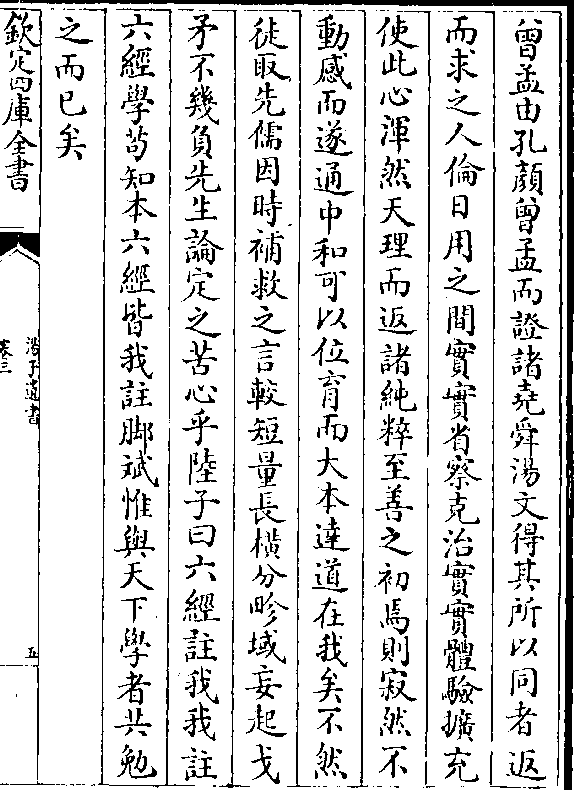 曾孟由孔顔曾孟而證諸堯舜湯文得其所以同者返
而求之人倫日用之間實實省察克治實實體驗擴充
使此心渾然天理而返諸純粹至善之初焉則寂然不
動感而遂通中和可以位育而大本達道在我矣不然
徒取先儒因時補救之言較短量長横分畛域妄起戈
矛不幾負先生論定之苦心乎陸子曰六經註我我註
六經學茍知本六經皆我註脚斌惟與天下學者共勉
之而已矣
欽定四庫全書
湯子遺書
卷三
五